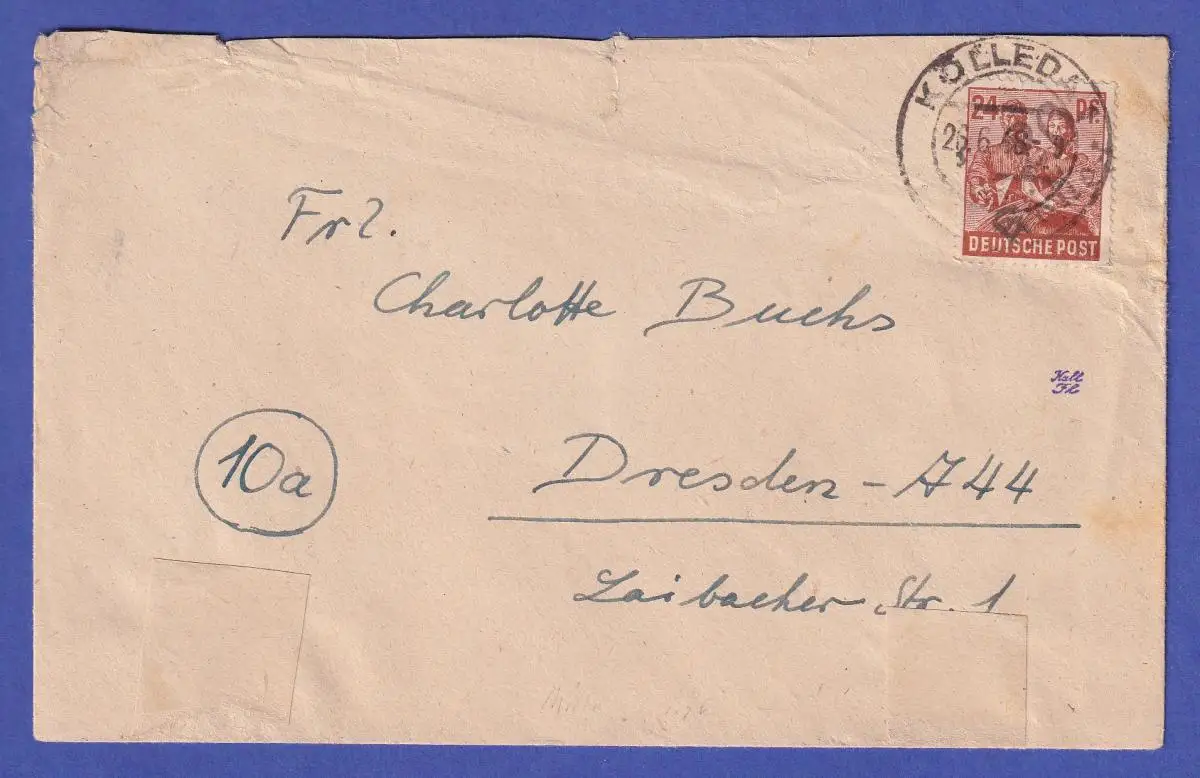 KÖLLEDA
24 Pf.
DEUTSCHE POST
Frl.
Charlotte Buchs
10a
Dresden - A 44
Laibacher Str. 1